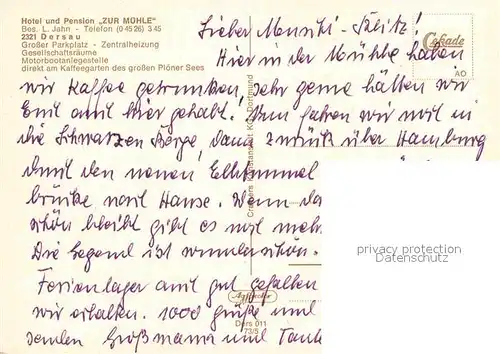 Hotel und Pension „ZUR MÜHLE"
Bes. L. Jahn - Telefon (0 45 26) 3 45
2321 Dersau
Großer Parkplatz - Zentralheizung
Gesellschaftsräume
Motorbootanlegestelle
direkt am Kaffeegarten des großen Plöner Sees
Lieber
Hier in der Mühle haben
wir Kaffee getrunken, sehr gerne hätten wir
Euch mit hier gehabt! Nun fahren wir noch in
die Schwarzen Berge, dann zurück über Hamburg
durch den neuen Elbtunnel
brücke nach Hause. Wenn das
schön bleibt gibt es noch mehr
Die Gegend ist wunderschön.
Ferienlager auch gut gefallen
wir erhalten. 1000 Grüße und
senden Großmama und Tante
Cekade
AO
Cramers Kunstanstalt KG, Dortmund
Ders 011
73/5
privacy protection
Datenschutz